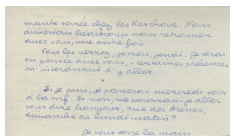 mante soirée chez les Kerchove. Nous
aimerions beaucoup nous retrouver
avec vous, une autre fois.
Vous les verrez, je crois, jeudi. Je serai
en pensée avec vous, certaines présences
m'interdisant d'y aller.
Si je puis, je passerai mercredi soir
à la nrf. Si non, me pourrais-je aller
vous dire bonjour, rue des Arènes,
dimanche ou lundi matin?
Je vous serre la main